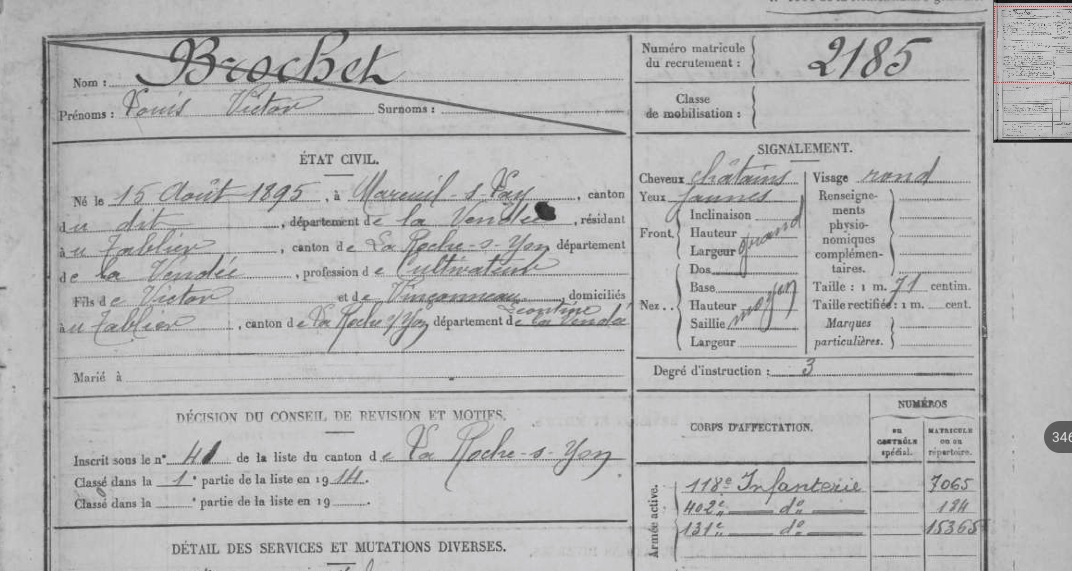 Nom : Brochet
Prénoms : Louis Victor Surnoms :
Numéro matricule
du recrutement : 2185
Classe
de mobilisation :
ÉTAT CIVIL.
Né le 15 Août 1895, à Mareuil-s-Lay, canton
du dit, département de la Vendée, résidant
à u Tablier, canton de La Roche-s-Yon département
de la Vendée, profession de Cultivateur
Fils de Victor et de Vinçonneau Léontine, domiciliés
à u Tablier, canton de La Roche s/Yon département de la Vendée
Marié à
SIGNALEMENT.
Cheveux châtains
Yeux jaunes
Front. Inclinaison
Hauteur
Largeur grand
Nez.. Dos
Base
Hauteur
Saillie moyen
Largeur
Visage rond
Renseigne-
ments
physio-
nomiques
complémen-
taires.
Taille : 1 m. 71 centim.
Taille rectifiée : 1 m. cent.
Marques
particulières.
Degré d'instruction : 3
DÉCISION DU CONSEIL DE REVISION ET MOTIFS.
Inscrit sous le n° 41 de la liste du canton de La Roche-s-Yon
Classé dans la 1e partie de la liste en 1914.
Classé dans la e partie de la liste en 19
DÉTAIL DES SERVICES ET MUTATIONS DIVERSES.
CORPS D'AFFECTATION.
NUMÉROS
au
CONTRÔLE
spécial.
MATRICULE
ou au
répertoire.
Armée active.
118e Infanterie 7065
402e do 184
131e do 15365
346